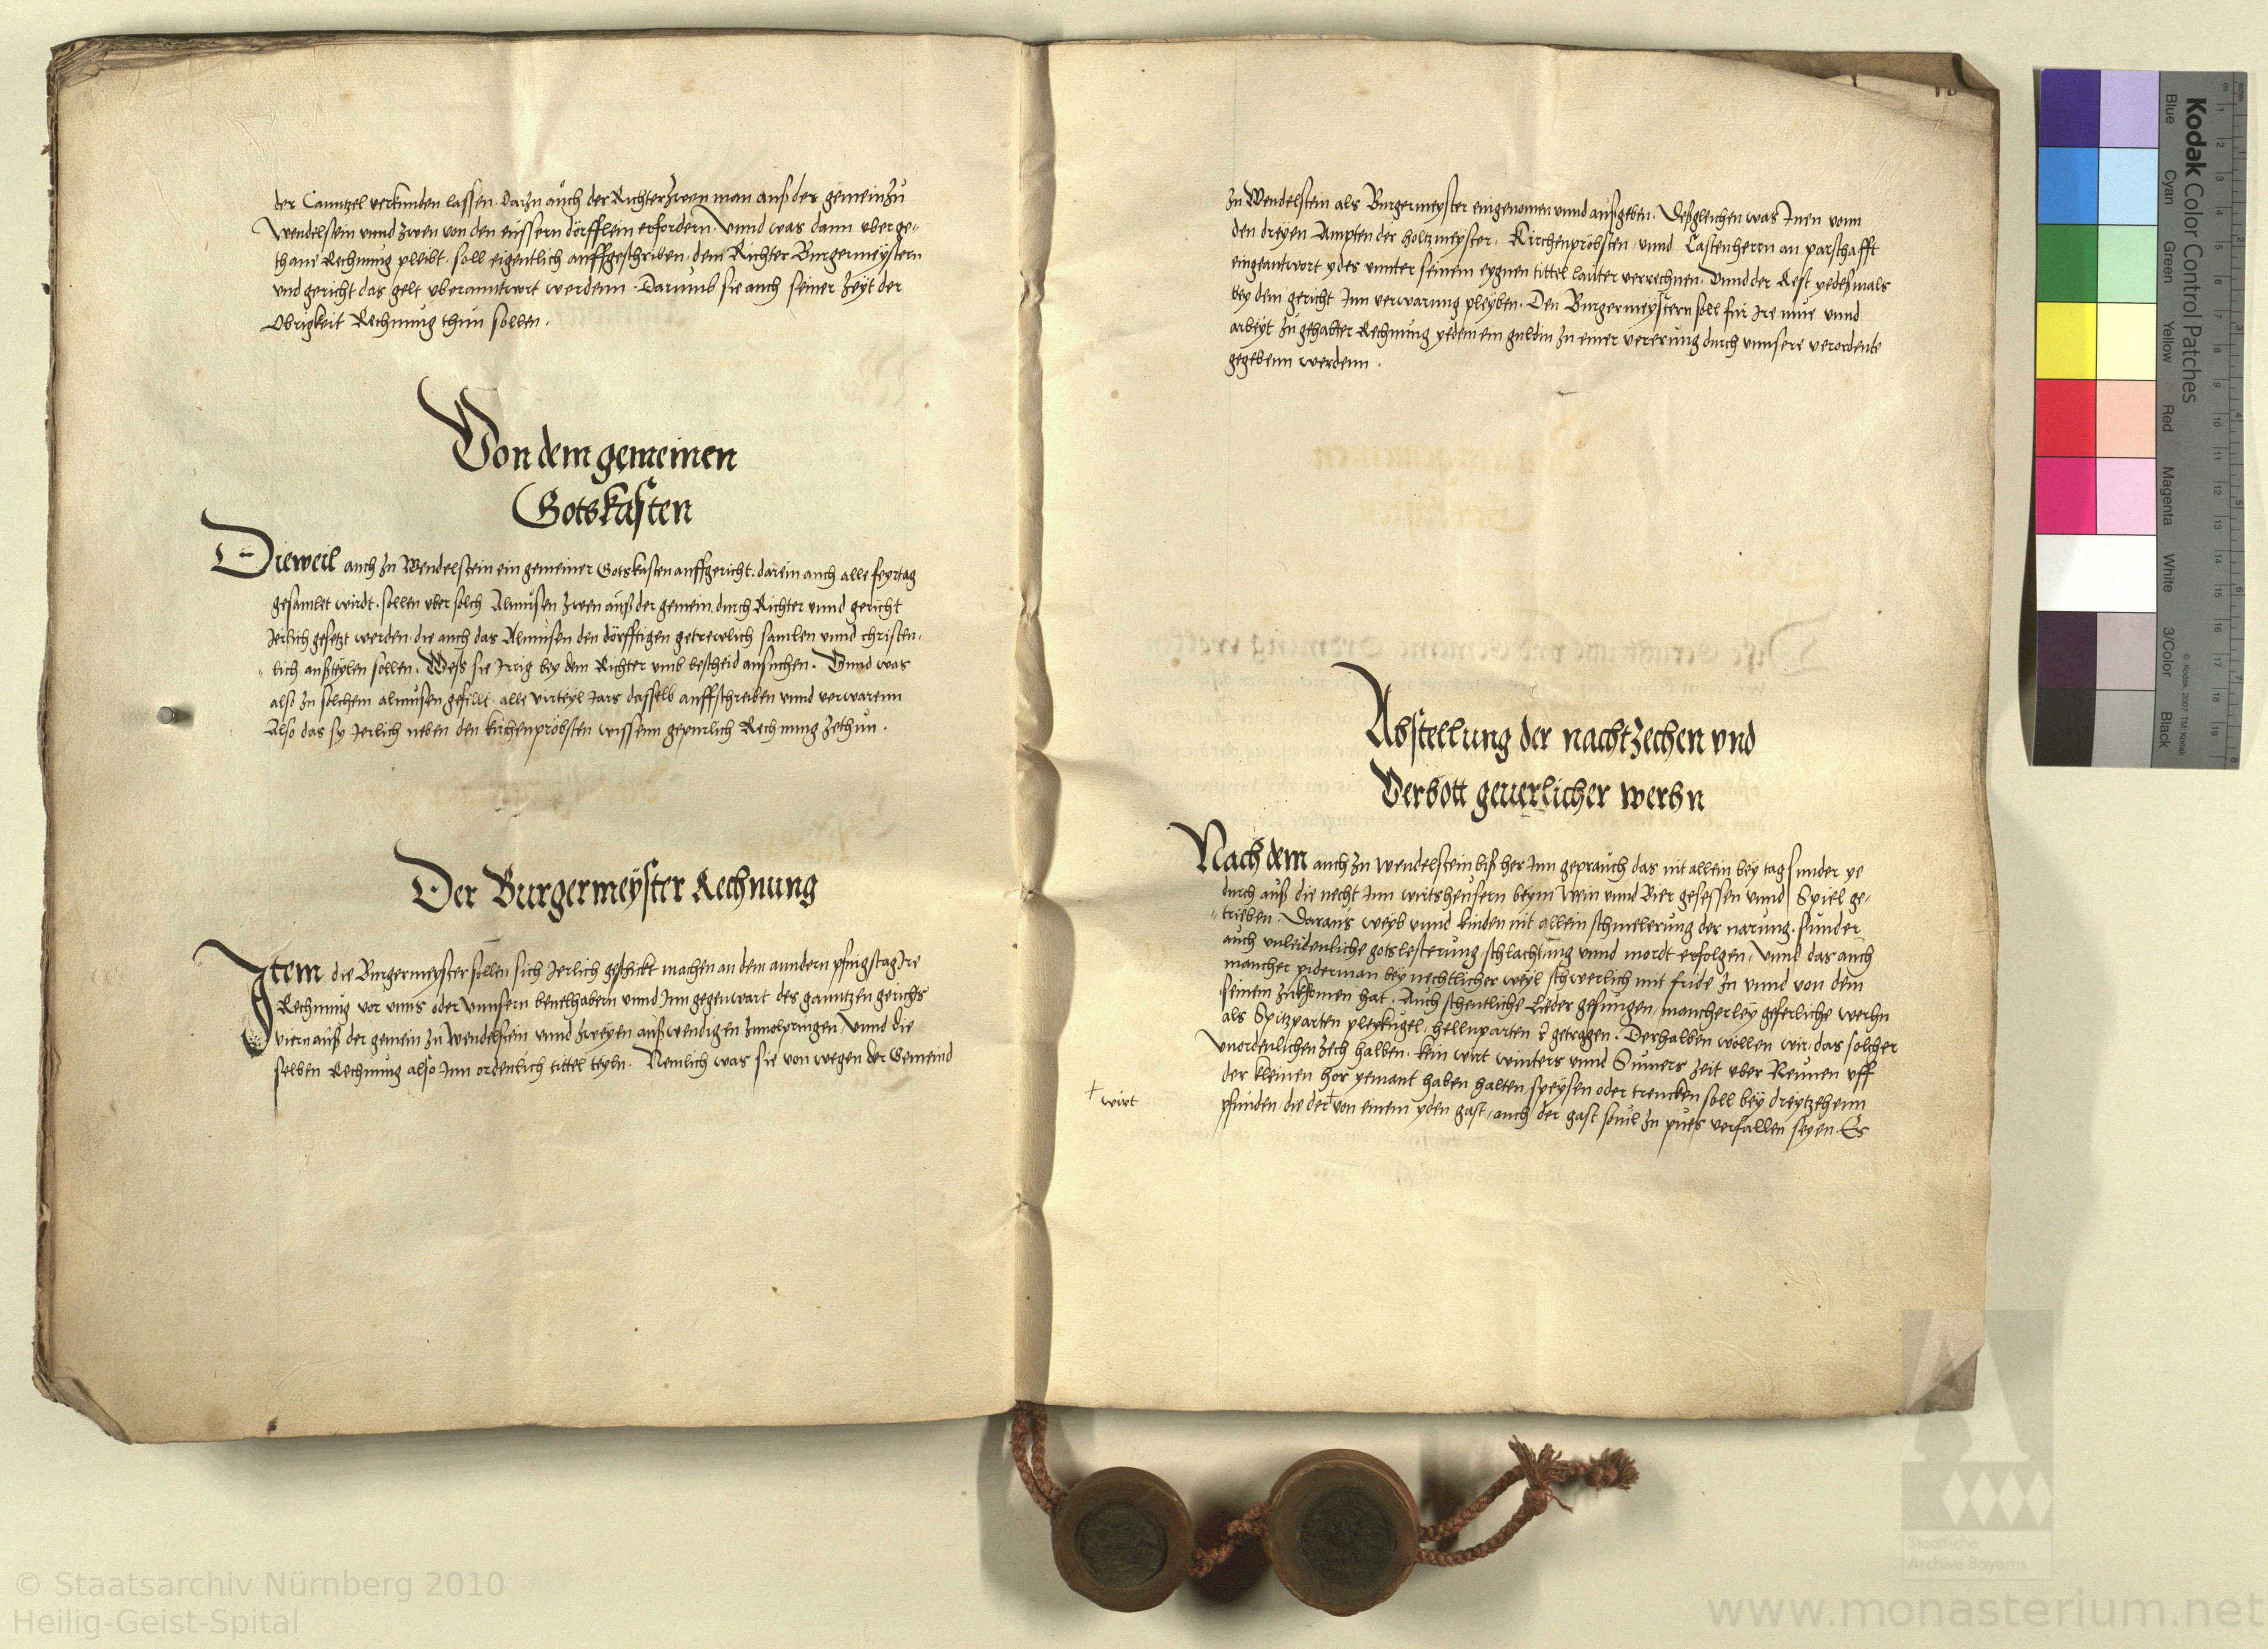 der Canntzel verkunden lassen. Dartzu auch der Richter zwen man auß der gemein zu
Wendelstein vnnd zwen von den eussern dörfflein erfordern. Vnnd was dann vber ge-
thane Rechnung pleibt. soll eigentlich auffgeschriben. dem Richter Burgermeystern
vnd gericht das gelt vberanntwort werdenn. Darumb sie auch seiner zeyt der
Obrigkeit Rechnung thun sollen.
Von dem gemeinen
Gotskasten
Dieweil auch zu Wendelstein ein gemeiner Gotskasten auffgericht. darein auch alle feyrtag
gesamlet wirdt. sollen vber solch Almusen zwen auß der gemein. durch Richter vnnd gericht
Jerlich gesetzt werden. die auch das Almusen den dörfftigen getrewlich samlen vnnd christen-
lich außteylen sollen. Weß sie Irrig bey dem Richter vmb bescheid ansuchen. Vnnd was
also zu solchem almusen gefellt. alle virteyl Jars dasselb auffschreiben vnnd verwarenn
Also das sy Jerlich neben den kirchenpröbsten wissenn gepurlich Rechnung zethun.
Der Burgermeyster Rechnung
Item die Burgermeyster sollen sich Jerlich geschickt machen an dem anndern pfingstag Ire
Rechnung vor vnns oder vnnsern beuelhabern vnnd Inn gegenwart des ganntzen gerichts
viern auß der gemein zu Wendelstein vnnd zweyen außwendigen zuuolpringen. Vnnd die
selben Rechnung also Inn ordenlich tittel teyln. Nemlich was sie von wegen der Gemeind
zu Wendelstein als Burgermeyster eingenomen vnnd außgeben. Deßgleichen was Inen vonn
den dreyen Ampten der holtzmeyster. Kirchenpröbsten vnnd Castenherrn an parschafft
eingeantwort ydes vnnter seinem eygnen tittel lauter verrechnen. Vnnd der Rest yedeßmals
bey dem gericht Inn verwarung pleyben. Den Burgermeystern soll für Ire müe vnnd
arbeyt zu gehabter Rechnung yedem ein guldin zu einer vererung durch vnnsere verordente
gegebenn werdenn.
Abstellung der nachtzechen vnd
Verbott geuerlicher werhn
Nach dem auch zu Wendelstein biß her Inn geprauch das nit allein bey tag sunder ye
durch auß die necht Inn wirtsheusern beym Wein vnnd Bier gesessen vnnd Spiel ge-
trieben. Darauß weyb vnnd kinden nit allein schmelerung der narung. sunder
auch vnleidenliche gotslesterung schlachtung vnnd mordt erfolgen. Vnnd das auch
mancher piderman bey nechtlicher weyl schwerlich mit fride zu vnnd von dem
seinem zukomen hat. Auch schentliche Lieder gesungen mancherley geferliche werhn
als Spitzparten pleykugel. hellnparten getragen. Derhalben wöllen wir. das solcher
vnordenlichen zech halben. kein wirt winters vnnd Sumers zeit vber Neunen vff
der kleinen hor yemant haben halten speysen oder trencken soll bey dreytzehenn
pfunden die der + von einem yden gast / auch der gast souil zu pueß verfallen seyen. Es
+ wirt
Kodak Color Control Patches
Blue Cyan Green Yellow Red Magenta White 3/Color Black
© Kodak, 2007 TM: Kodak
© Staatsarchiv Nürnberg 2010
Heilig-Geist-Spital
Staatliche
Archive Bayerns
www.monasterium.net